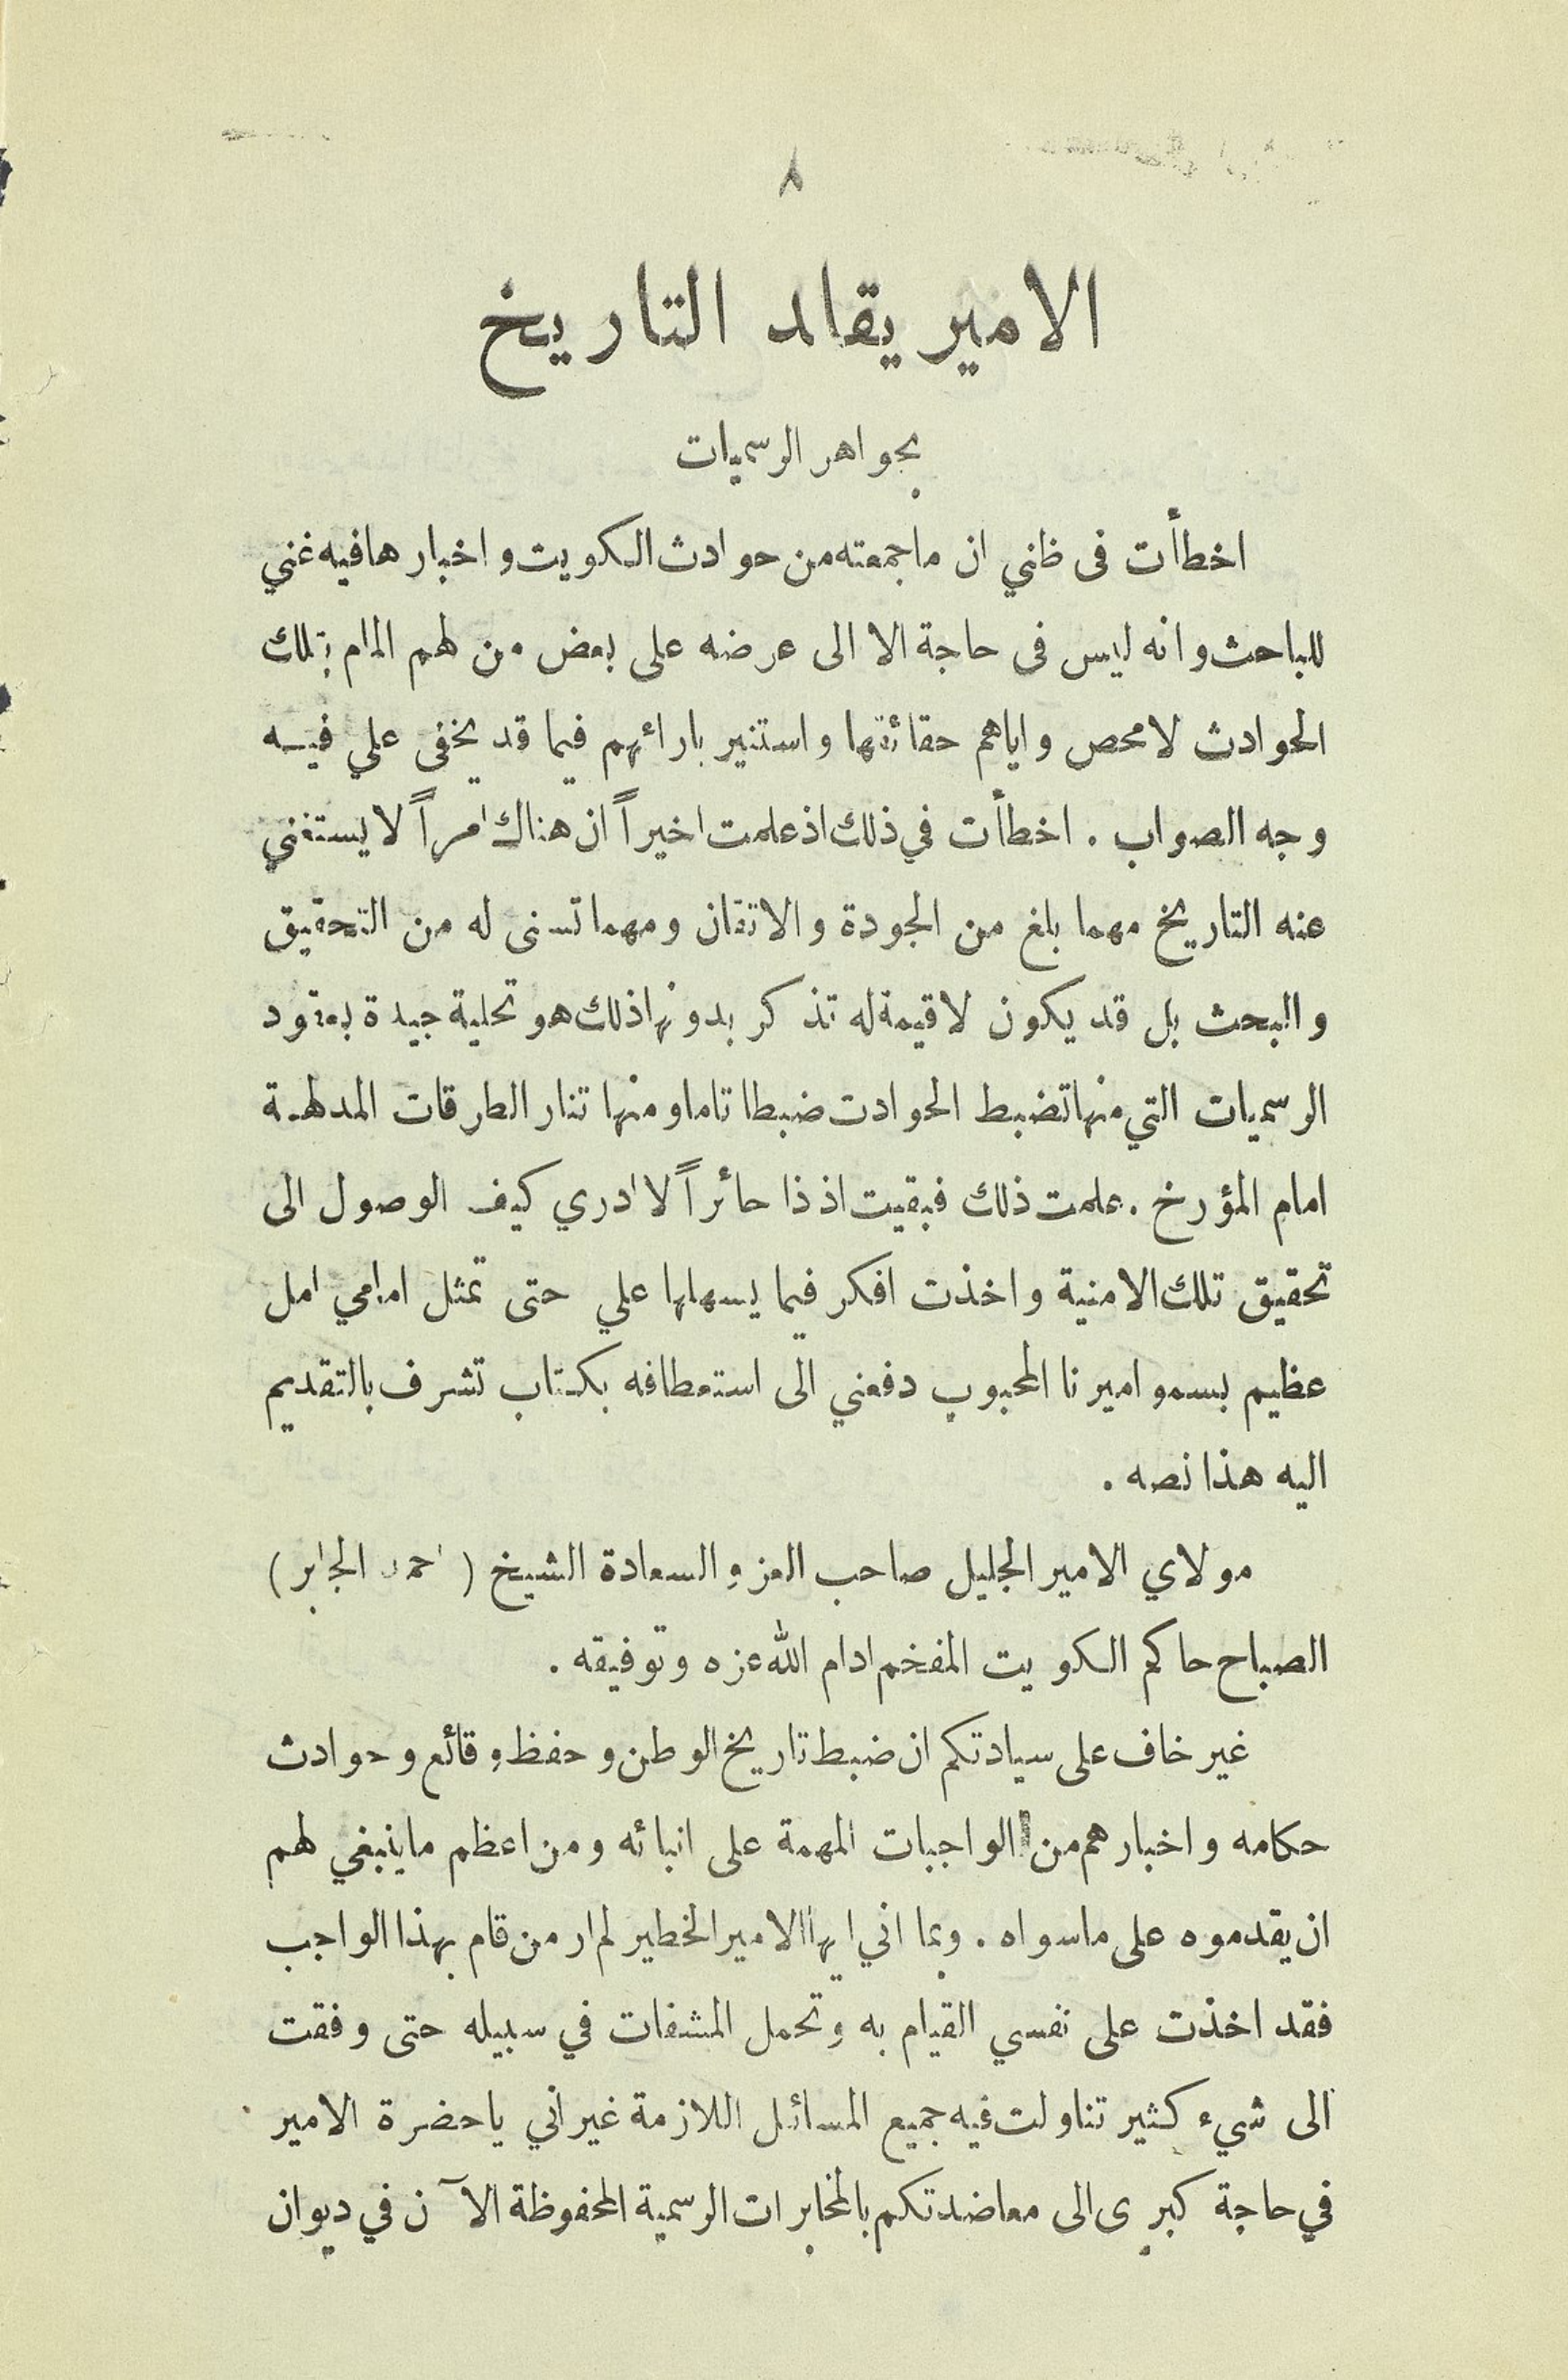 ٨
الامير يقلد التاريخ
بجواهر الرسميات
اخطأت فى ظني ان ماجمعته من حوادث الكويت و اخبارها فيه غني
للباحث و انه ليس فى حاجة الا الى عرضه على بعض من لهم المام بتلك
الحوادث لامحص واياهم حقائقها واستنير بارائهم فيما قد يخفى علي فيه
وجه الصواب . اخطأت في ذلك اذ علمت اخيراً ان هناك امراً لا يستغني
عنه التاريخ مهما بلغ من الجودة والاتقان ومهما تسنى له من التحقيق
والبحث بل قد يكون لا قيمة له تذكر بدونها ذلك هو تحلية جيدة بعقود
الرسميات التي منها تضبط الحوادت ضبطا تاما ومنها تنار الطرقات المدلهمة
امام المؤرخ . علمت ذلك فبقيت اذ ذا حائراً لا ادري كيف الوصول الى
تحقيق تلك الامنية واخذت افكر فيما يسهلها علي حتى تمثل امامي امل
عظيم بسمو اميرنا المحبوب دفعني الى استعطافه بكتاب تشرف بالتقديم
اليه هذا نصه .
مولاي الامير الجليل صاحب العز والسعادة الشيخ ( احمد الجابر )
الصباح حاكم الكويت المفخم ادام الله عزه وتوفيقه .
غير خاف على سيادتكم ان ضبط تاريخ الوطن وحفظ وقائع وحوادث
حكامه واخبارهم من الواجبات المهمة على انبائه ومن اعظم ماينبغي لهم
ان يقدموه على ماسواه . وبما اني ايها الامير الخطير لم ار من قام بهذا الواجب
فقد اخذت على نفسي القيام به وتحمل المشقات في سبيله حتى وفقت
الى شيء كثير تناولت فيه جميع المسائل اللازمة غير اني ياحضرة الامير
في حاجة كبرى الى معاضدتكم بالمخابرات الرسمية المحفوظة الآن في ديوان